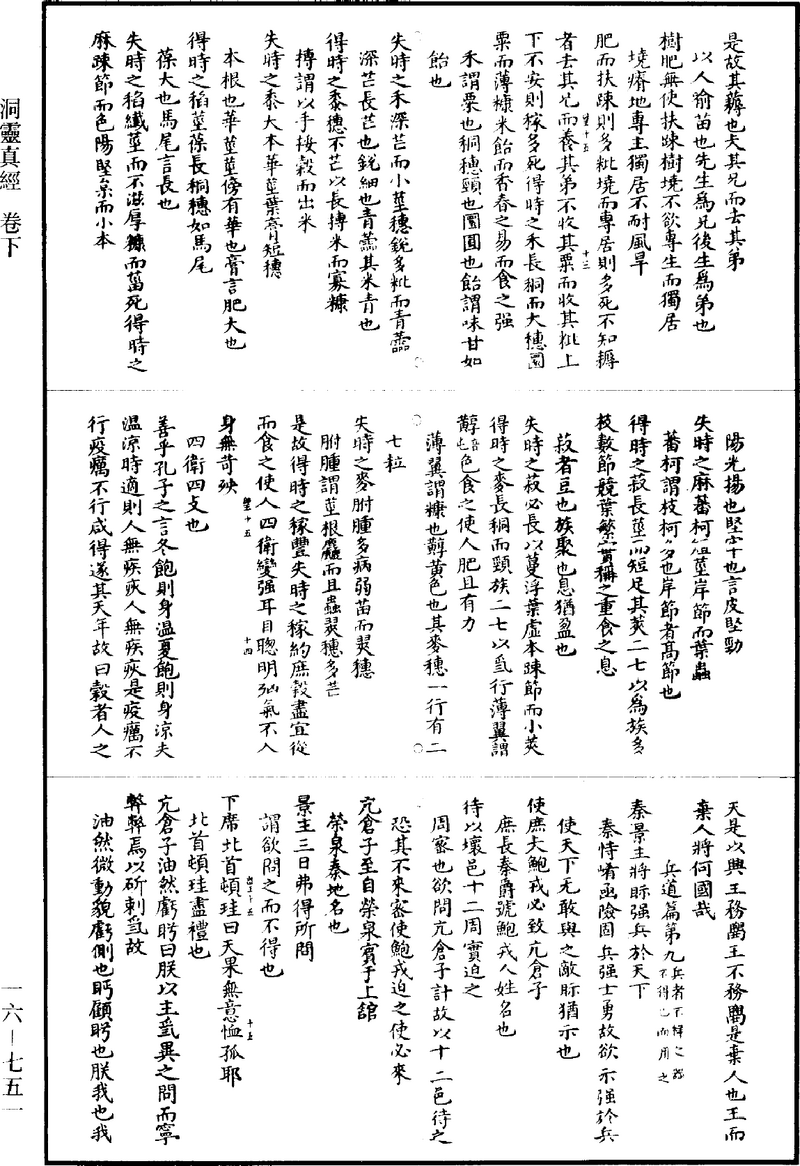 洞靈真經 卷下
一六—七五一
是故其耨也大其兄而去其弟
以人喻苗也先生為兄後生為弟也
樹肥無使扶踈樹墝不欲專生而獨居
墝瘠地專主獨居不耐風旱
肥而扶踈則多粃墝而專居則多死不知耨
者去其兄而養其弟不收其粟而收其粃上
下不安則稼多死得時之禾長稠而大穗圓
粟而薄糠米飴而香舂之易而食之强
禾謂粟也稠穗頸也圓圓也飴謂味甘如
飴也
失時之禾深芒而小莖穗銳多粃而青蘦
深芒長芒也銳細也青蘦其米青也
得時之黍穗不芒以長摶米而寡糠
摶謂以手挼穀而出米
失時之黍大本華莖葉膏短穗
本根也華莖莖傍有華也膏言肥大也
得時之稻莖葆長稠穗如馬尾
葆大也馬尾言長也
失時之稻纖莖而不滋厚糠而菑死得時之
麻踈節而色陽堅枲而小本
陽光揚也堅牢也言皮堅勁
失時之麻蕃柯短莖岸節而葉蟲
蕃柯謂枝柯多也岸節者高節也
得時之菽長莖而短足其莢二七以為族多
枝數節競葉繁實稱之重食之息
菽者豆也族聚也息猶盈也
失時之菽必長以蔓浮葉虛本踈節而小莢
得時之麥長稠而頸族二七以為行薄翼謂
䵍色食之使人肥且有力
薄翼謂糠也䵍黄色也其麥穗一行有二
七粒
失時之麥胕腫多病弱苗而翜穗
胕腫謂莖根麤而且蟲翜穗多芒
是故得時之稼豐失時之稼約庶穀盡宜從
而食之使人四衛變强耳目聰明㐫氣不入
身無苛殃
四衛四支也
善乎孔子之言冬飽則身温夏飽則身涼夫
温涼時適則人無疾疢人無疾疢是疫癘不
行疫癘不行咸得遂其天年故曰穀者人之
天是以興王務農王不務農是棄人也王而
棄人將何國哉
兵道篇第九 兵者不祥之器不得已而用之
秦景主將眎强兵於天下
秦恃崤函險固兵强士勇故欲示强於兵
使天下无敢與之敵眎猶示也
使庶大鮑戎必致亢倉子
庶長秦爵號鮑戎人姓名也
待以壤邑十二周實迫之
周密也欲問亢倉子計故以十二邑待之
恐其不來密使鮑戎迫之使必來
亢倉子至自榮泉賓于上舘
榮泉秦地名也
景主三日弗得所問
謂欲問之而不得也
下席北首頓珪曰天果無意恤孤耶
北首頓珪盡禮也
亢倉子油然虧眄曰朕以主為異之問而寧
弊弊焉以斫刺為故
油然微動貌虧側也眄顧眄也朕我也我